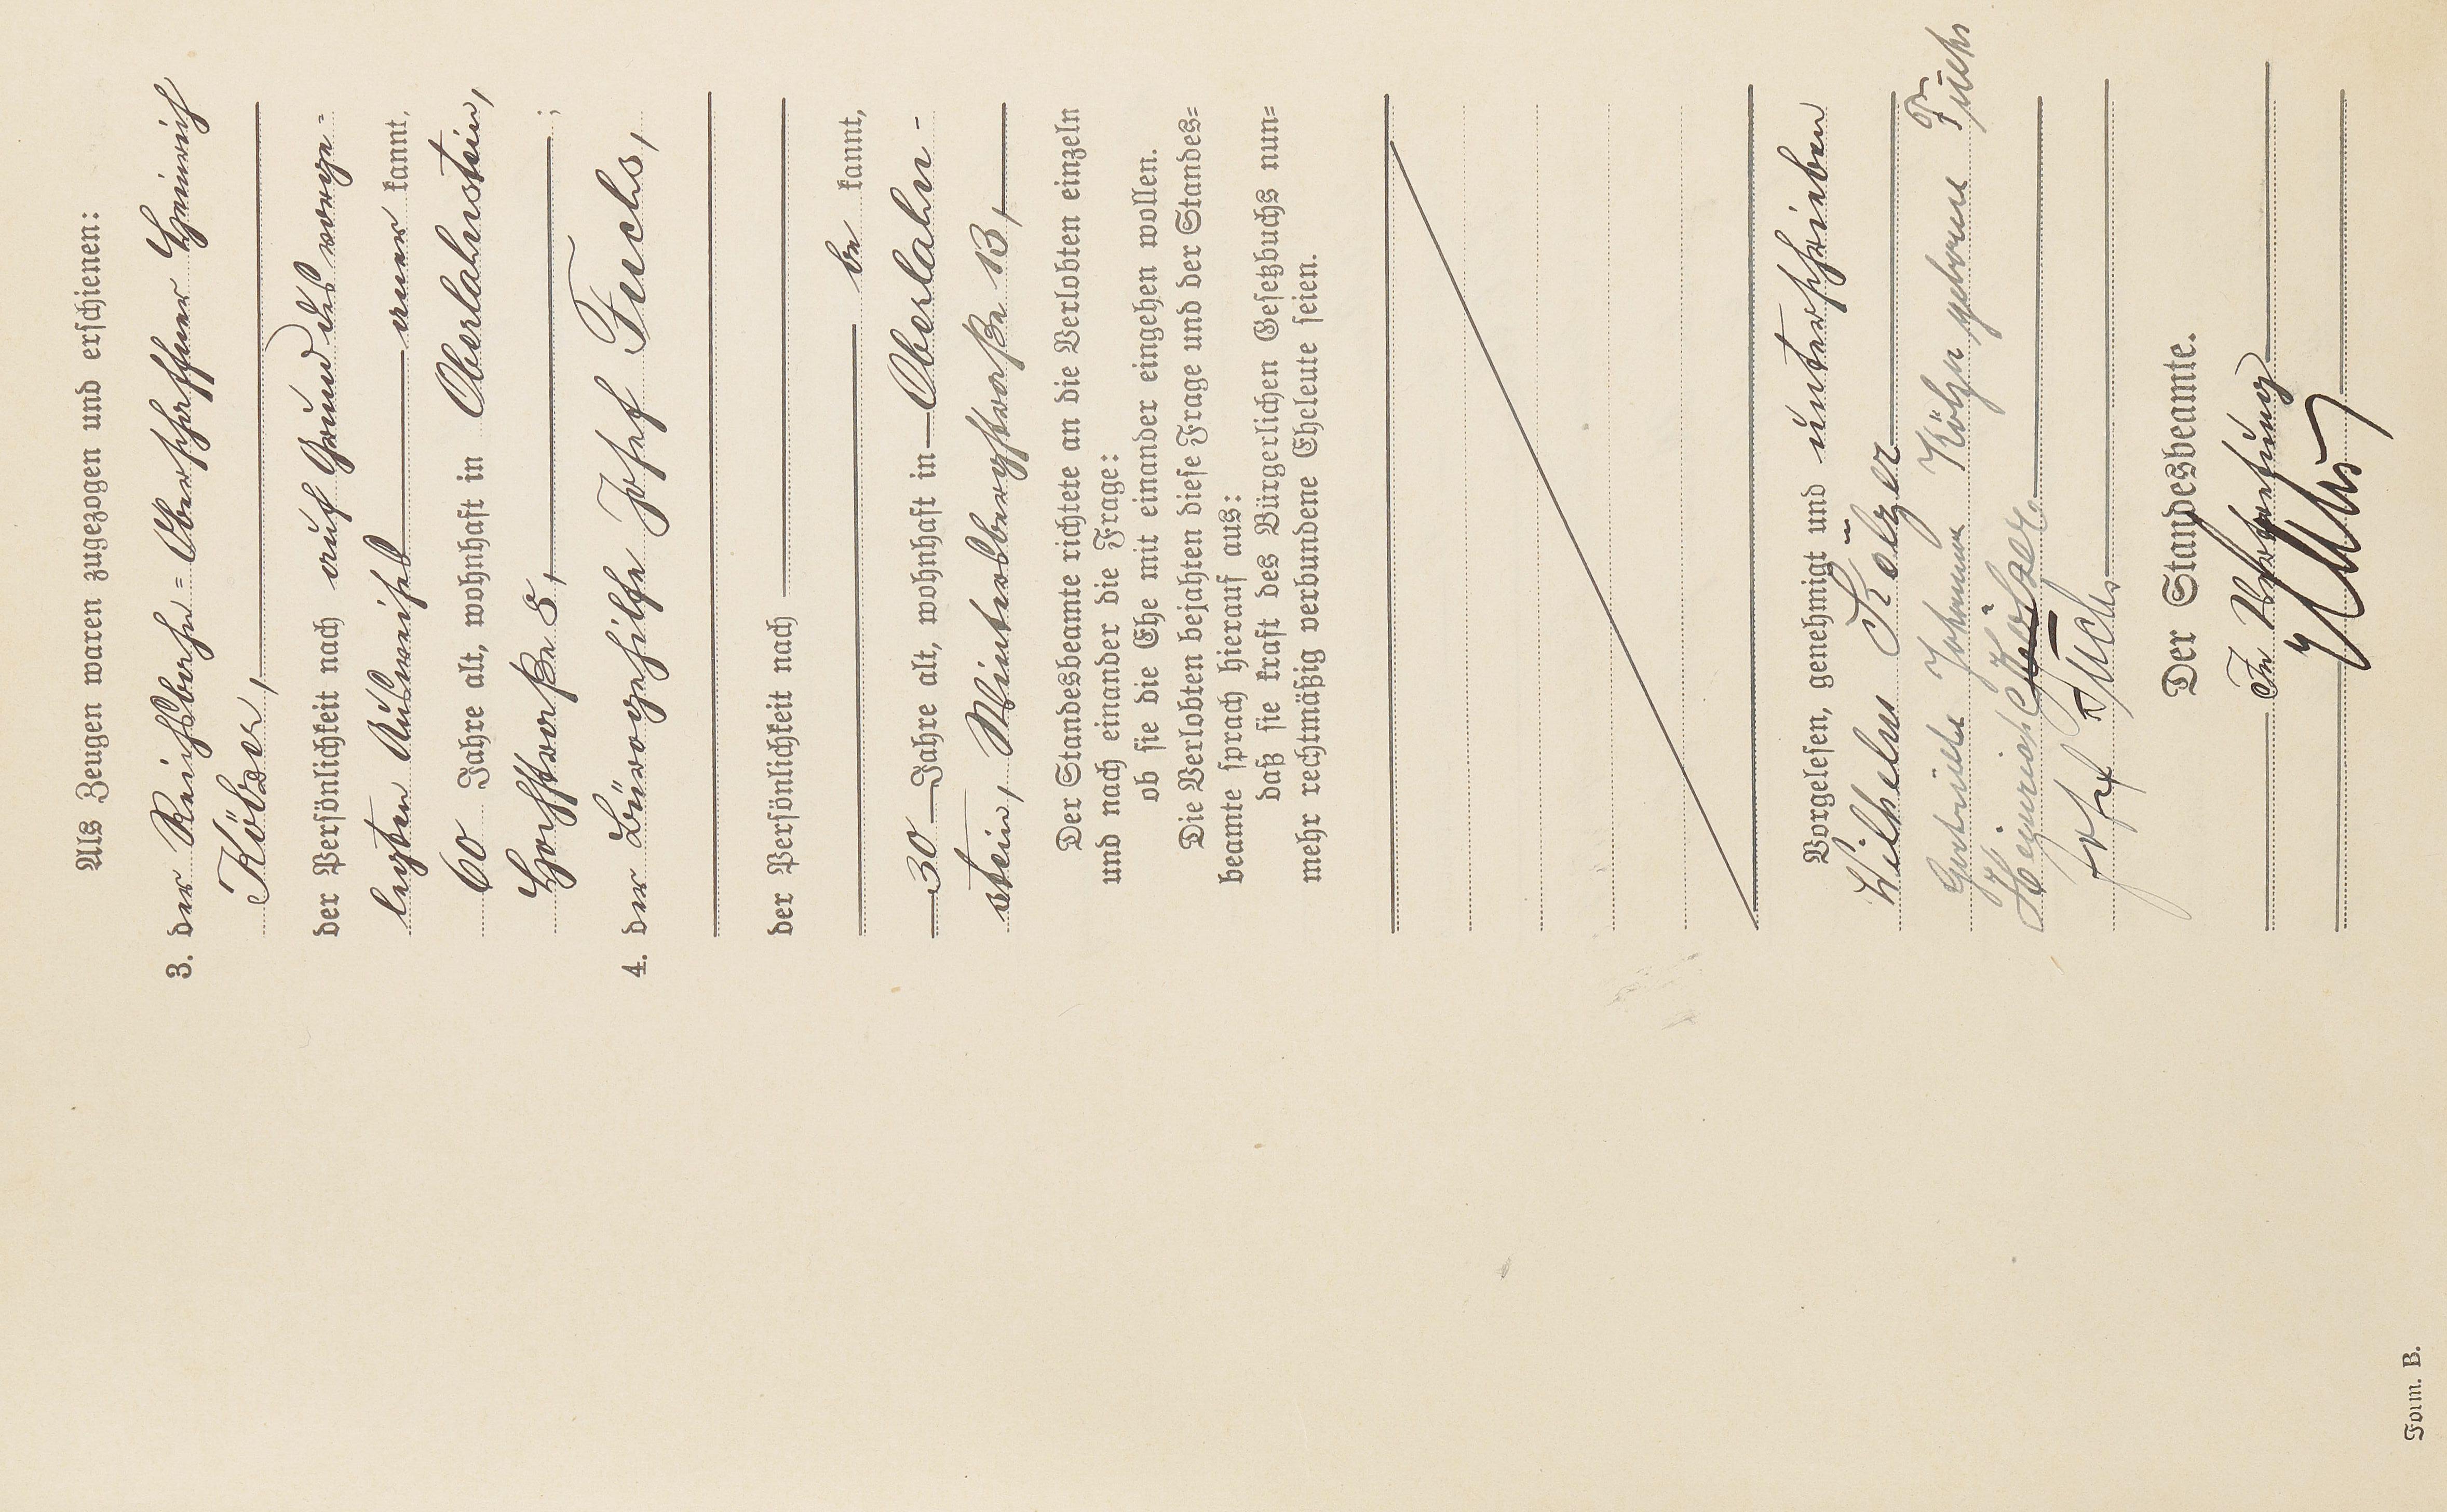 Als Zeugen waren zugezogen und erschienen:
3. der Reichsbahn=Oberschaffner Heinrich
Kölzer,
der Persönlichkeit nach auf Grund des vorge-
legten Ausweises anerkannt,
60 Jahre alt, wohnhaft in Oberlahnstein,
Hochstraße 8, ;
4. der Bürogehilfe Josef Fuchs,
der Persönlichkeit nach
be kannt,
30 Jahre alt, wohnhaft in Oberlahn-
stein, 13,
Der Standesbeamte richtete an die Verlobten einzeln
und nach einander die Frage:
ob sie die Ehe mit einander eingehen wollen.
Die Verlobten bejahten diese Frage und der Standes=
beamte sprach hierauf aus:
daß sie kraft des Bürgerlichen Gesetzbuchs nun=
mehr rechtmäßig verbundene Eheleute seien.
Vorgelesen, genehmigt und unterschrieben
Wilhelm Kölzer
Johanna Kölzer geborene Fuchs
Heinrich Kölzer.
Josef Fuchs
Der Standesbeamte.
In Vertretung
Form. B.